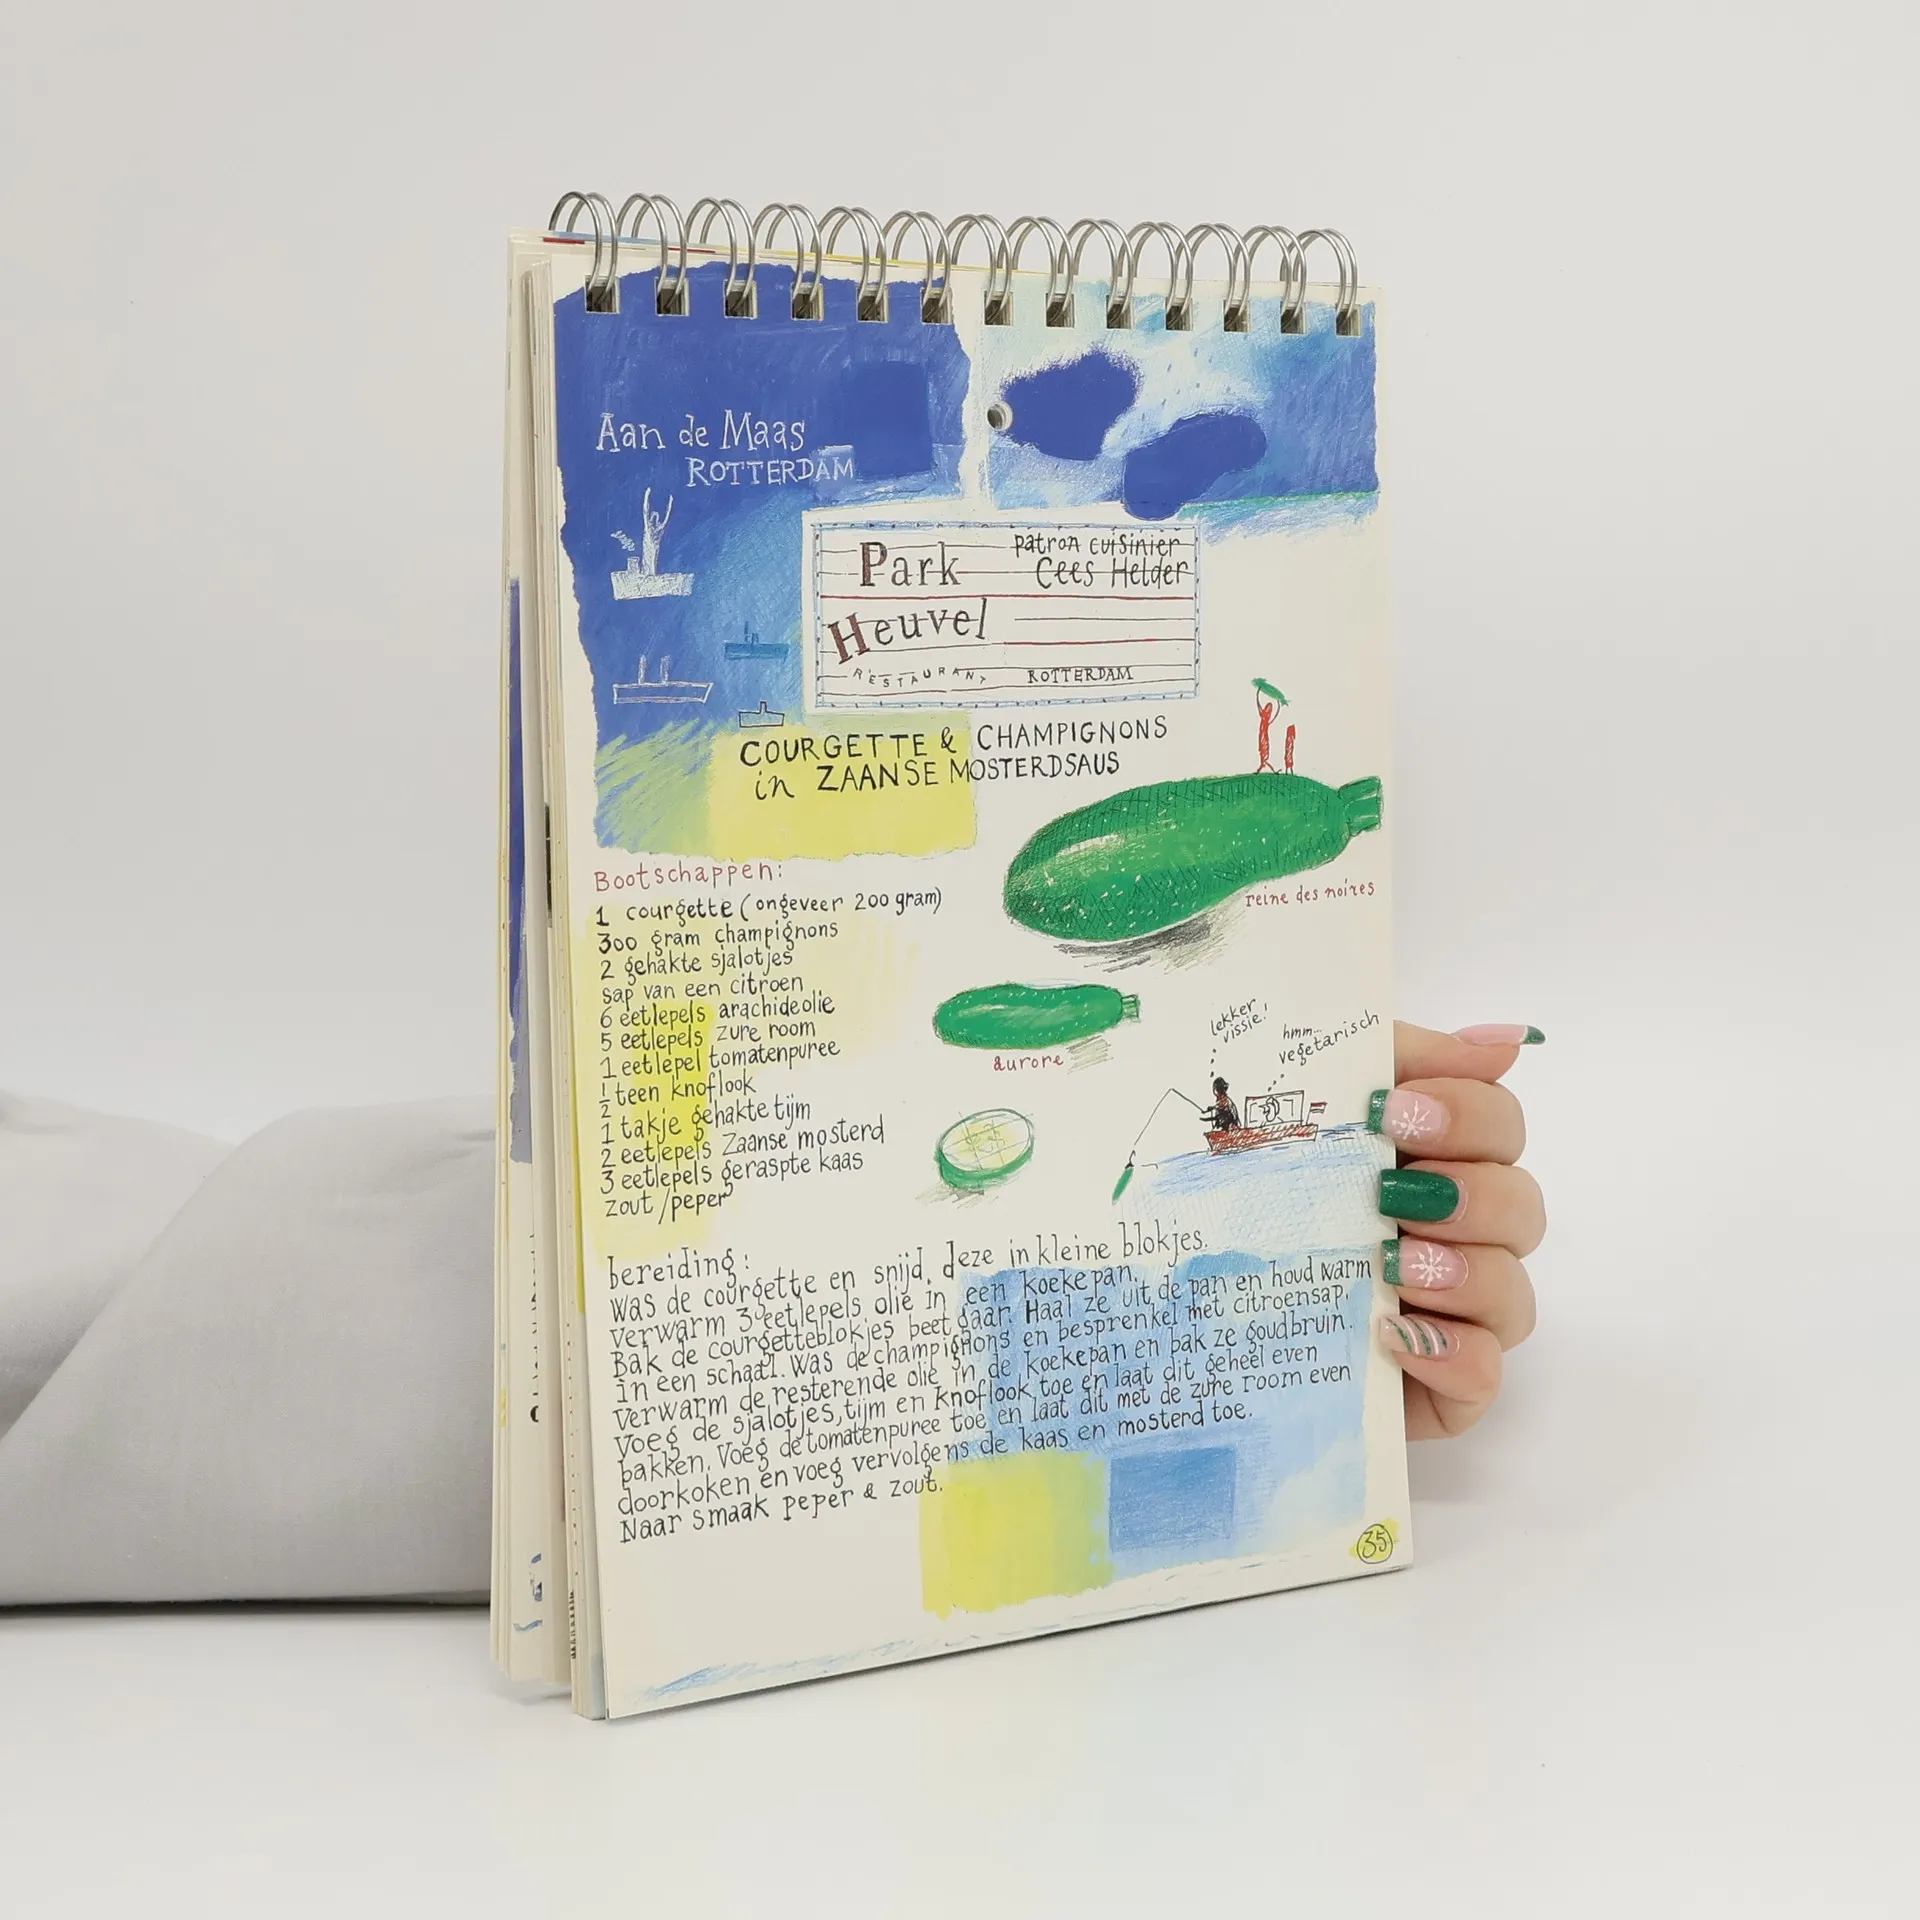 Aan de Maas
ROTTERDAM
Park
Heuvel
RESTAURANT
patron cuisinier
Cees Helder
ROTTERDAM
COURGETTE & CHAMPIGNONS
in ZAANSE MOSTERDSAUS
Bootschappen:
1 courgette (ongeveer 200 gram)
300 gram champignons
2 gehakte sjalotjes
sap van een citroen
6 eetlepels arachideolie
5 eetlepels zure room
1 eetlepel tomatenpuree
1/2 teen knoflook
1 takje gehakte tijm
2 eetlepels Zaanse mosterd
3 eetlepels geraspte kaas
zout / peper
reine des noires
aurore
lekker
vissie!
hmm...
vegetarisch
bereiding:
Was de courgette en snijd deze in kleine blokjes.
Verwarm 3 eetlepels olie in een koekepan.
Bak de courgetteblokjes beetgaar. Haal ze uit de pan en houd warm
in een schaal. Was de champignons en besprenkel met citroensap.
Verwarm de resterende olie in de koekepan en bak ze goudbruin.
Voeg de sjalotjes, tijm en knoflook toe en laat dit geheel even
bakken. Voeg de tomatenpuree toe en laat dit met de zure room even
doorkoken en voeg vervolgens de kaas en mosterd toe.
Naar smaak peper & zout.
35